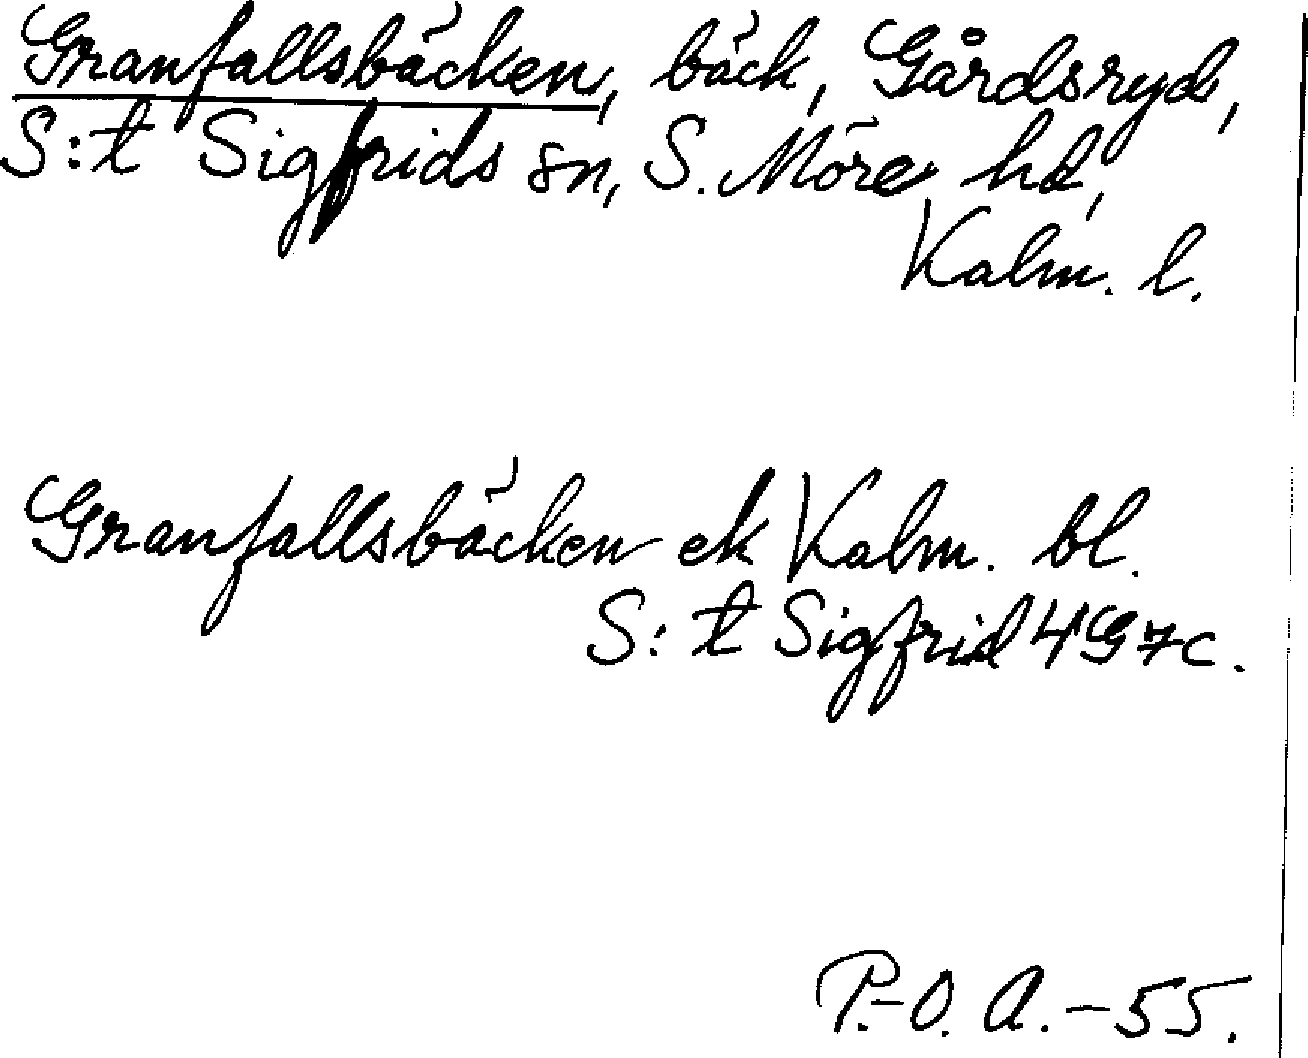 Granfallsbäcken, bäck, Gårdsryd,
S:t Sigfrids sn, S. Möre hd,
Kalm. l.
Granfallsbäcken ek Kalm. bl.
S:t Sigfrid 4G7c.
P.-O. A.-55.